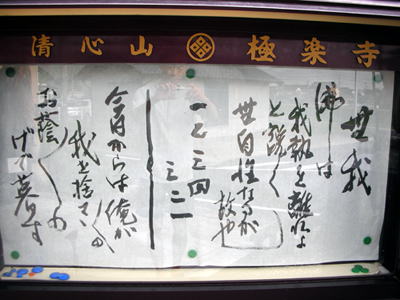 清心山 極楽寺
無我
佛は
我執を離れよ
と説く
無自性なるが
故也
一二三四
三二一
今日からは俺が〱の
我を捨て
お蔭〱の
げで暮す